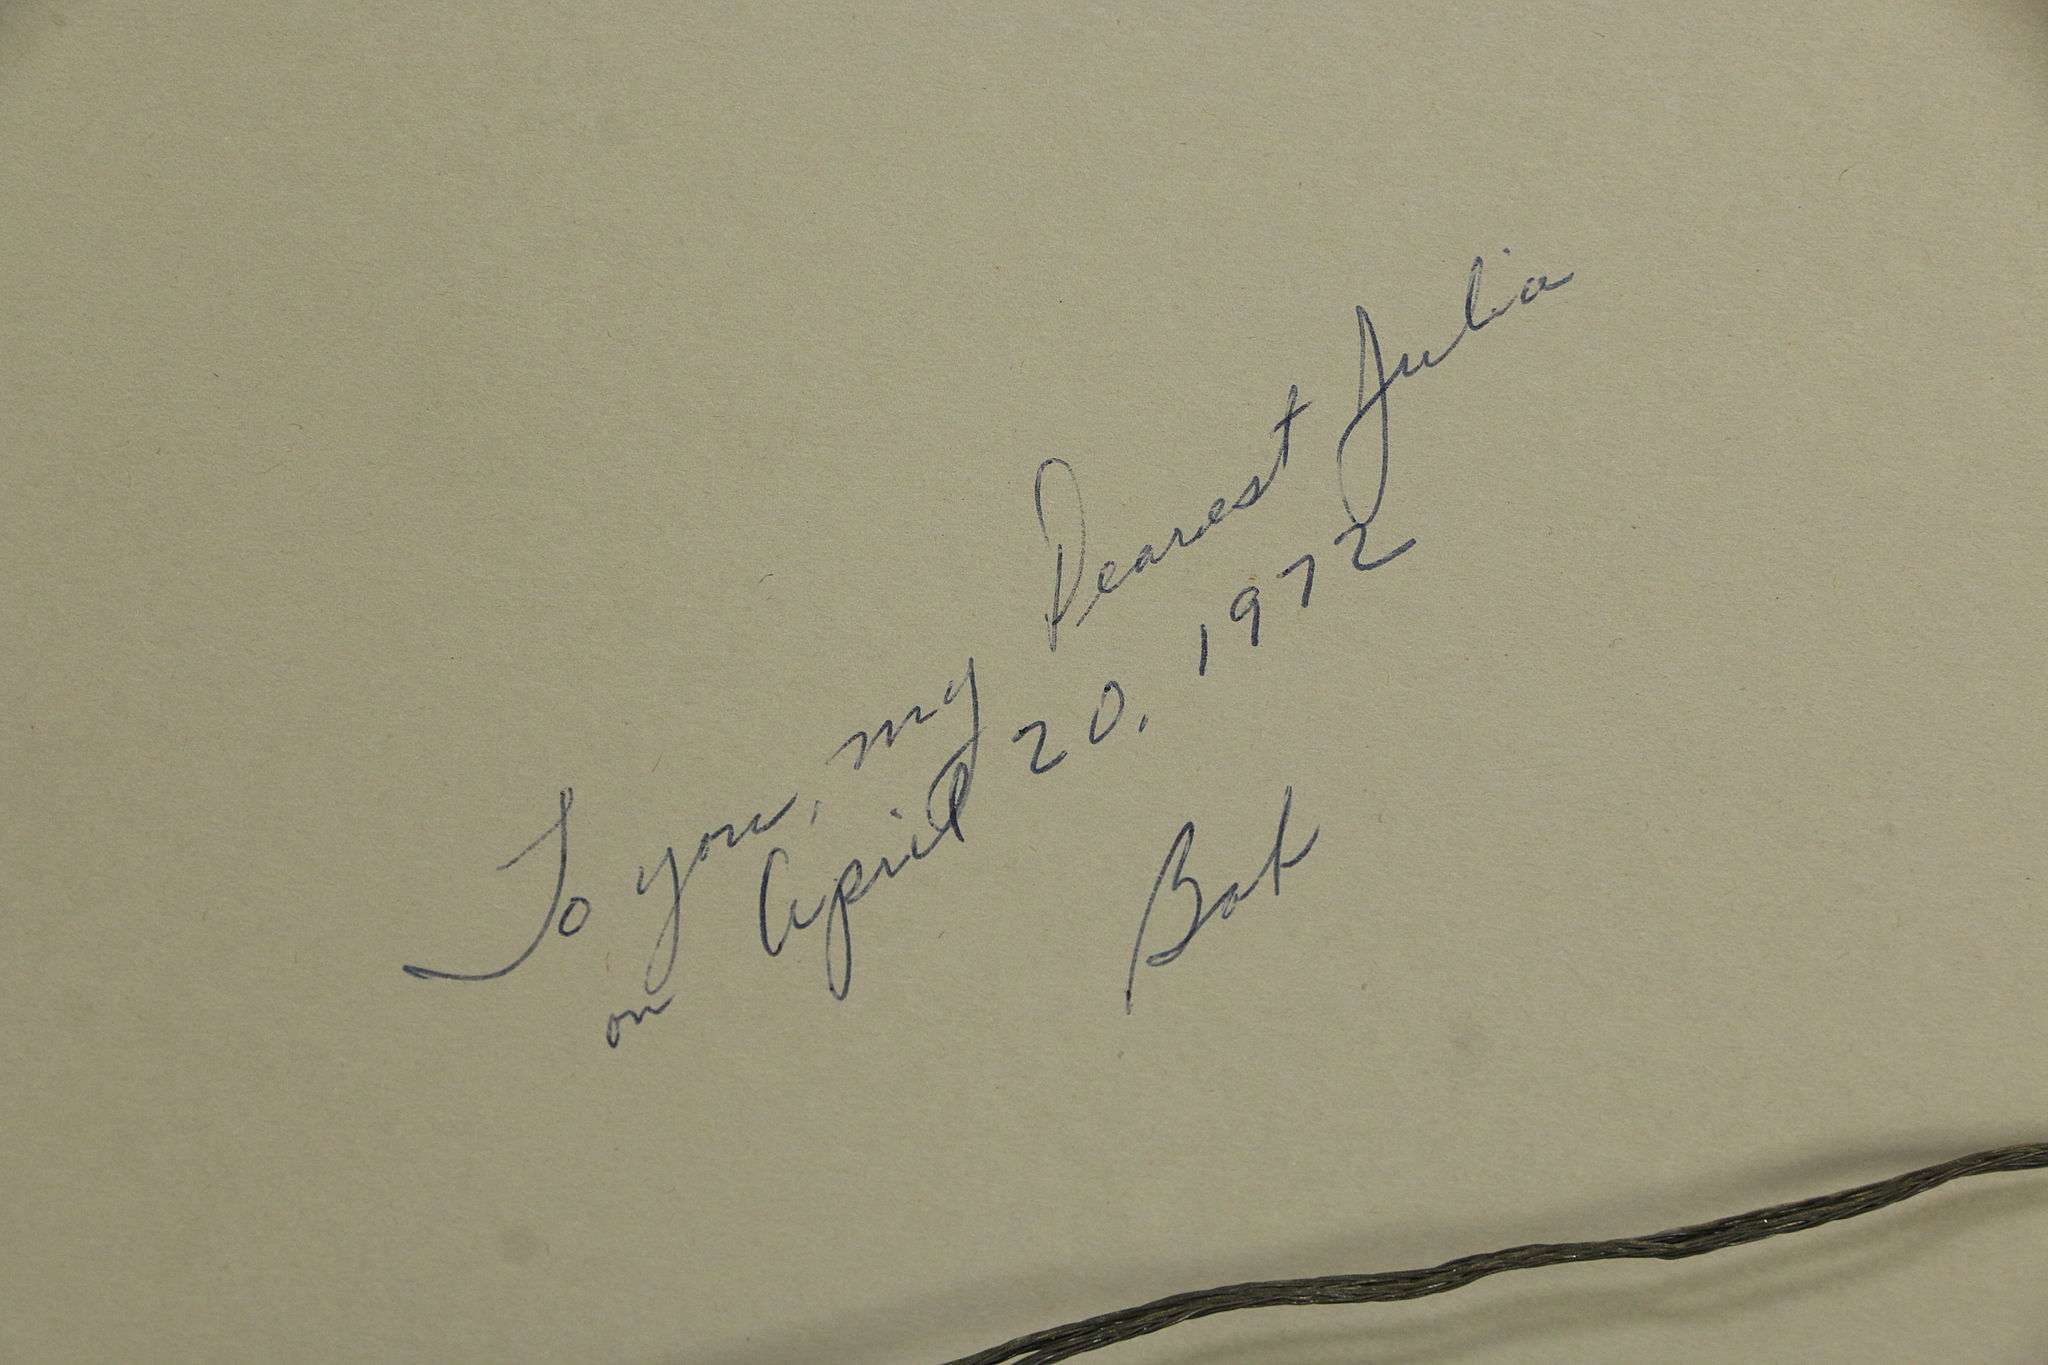 To you, my Dearest Julia
on April 20, 1972
Bob